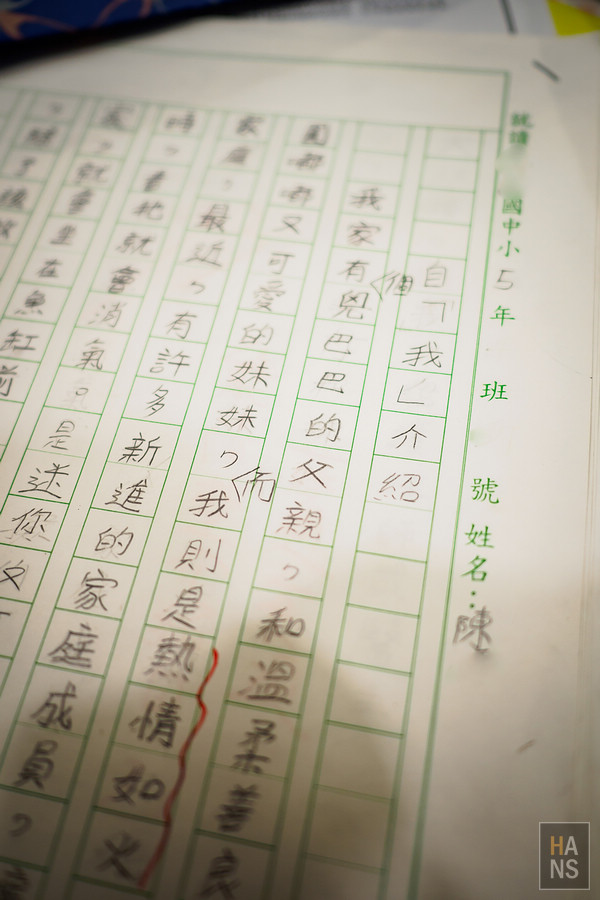 國中小 5 年 班 號 姓名：陳
自「我」介紹
我家有個兇巴巴的父親，和溫柔善良
圓嘟嘟又可愛的妹妹，而我則是熱情如火
家庭，最近，有許多新進的家庭成員，
時，看牠就會消氣。是迷你
，就會坐在魚缸前
，除了
HANS